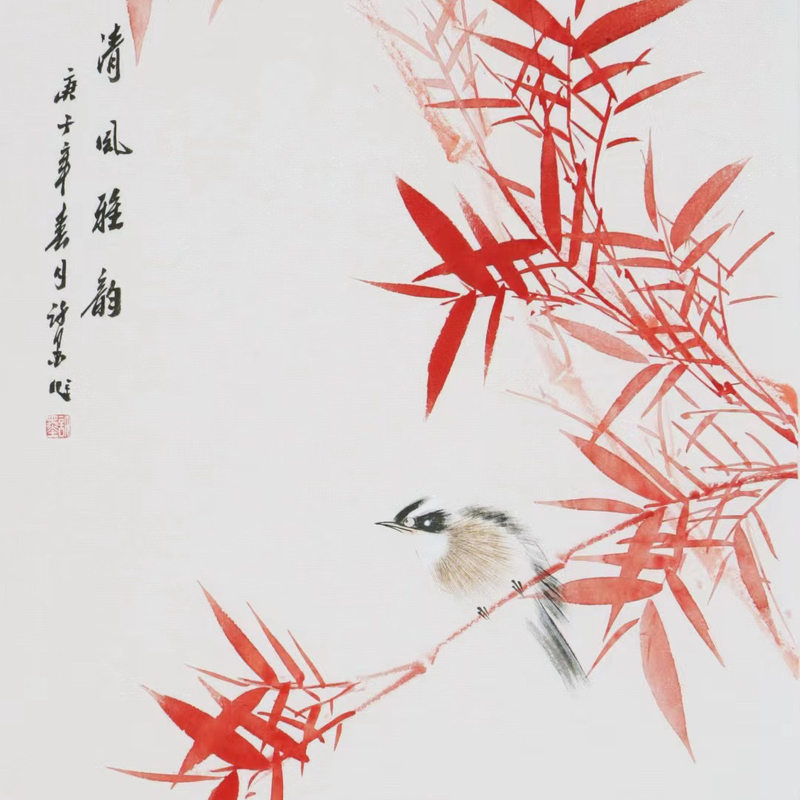 清風雅韵
庚子年春月作